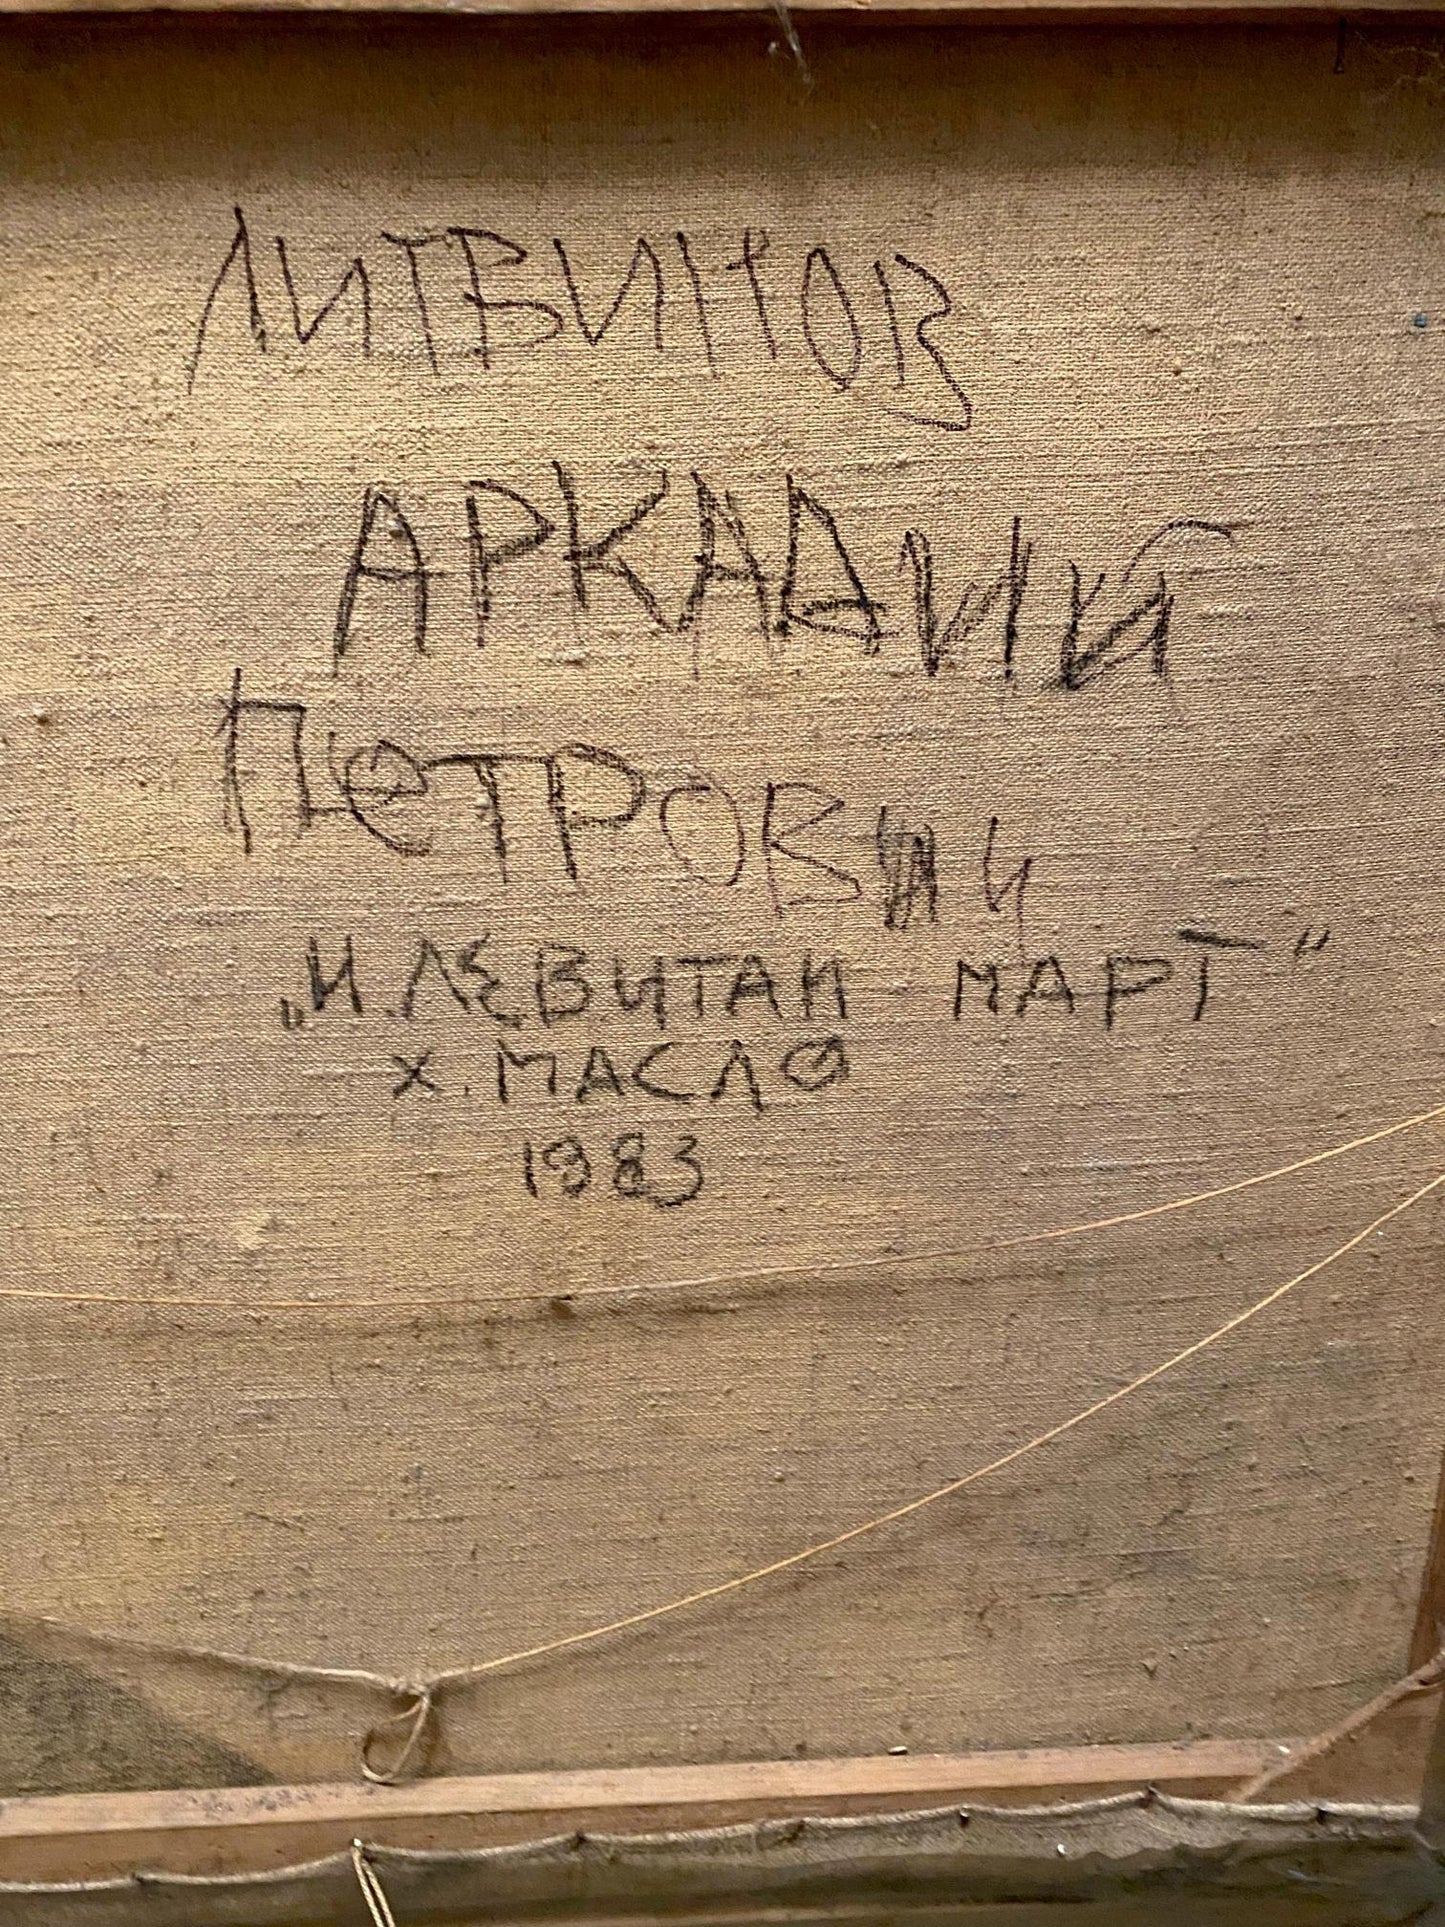 ЛИТВИНОВ
АРКАДИЙ
ПЕТРОВИЧ
„И. ЛЕВИТАН МАРТ"
Х. МАСЛО
1983